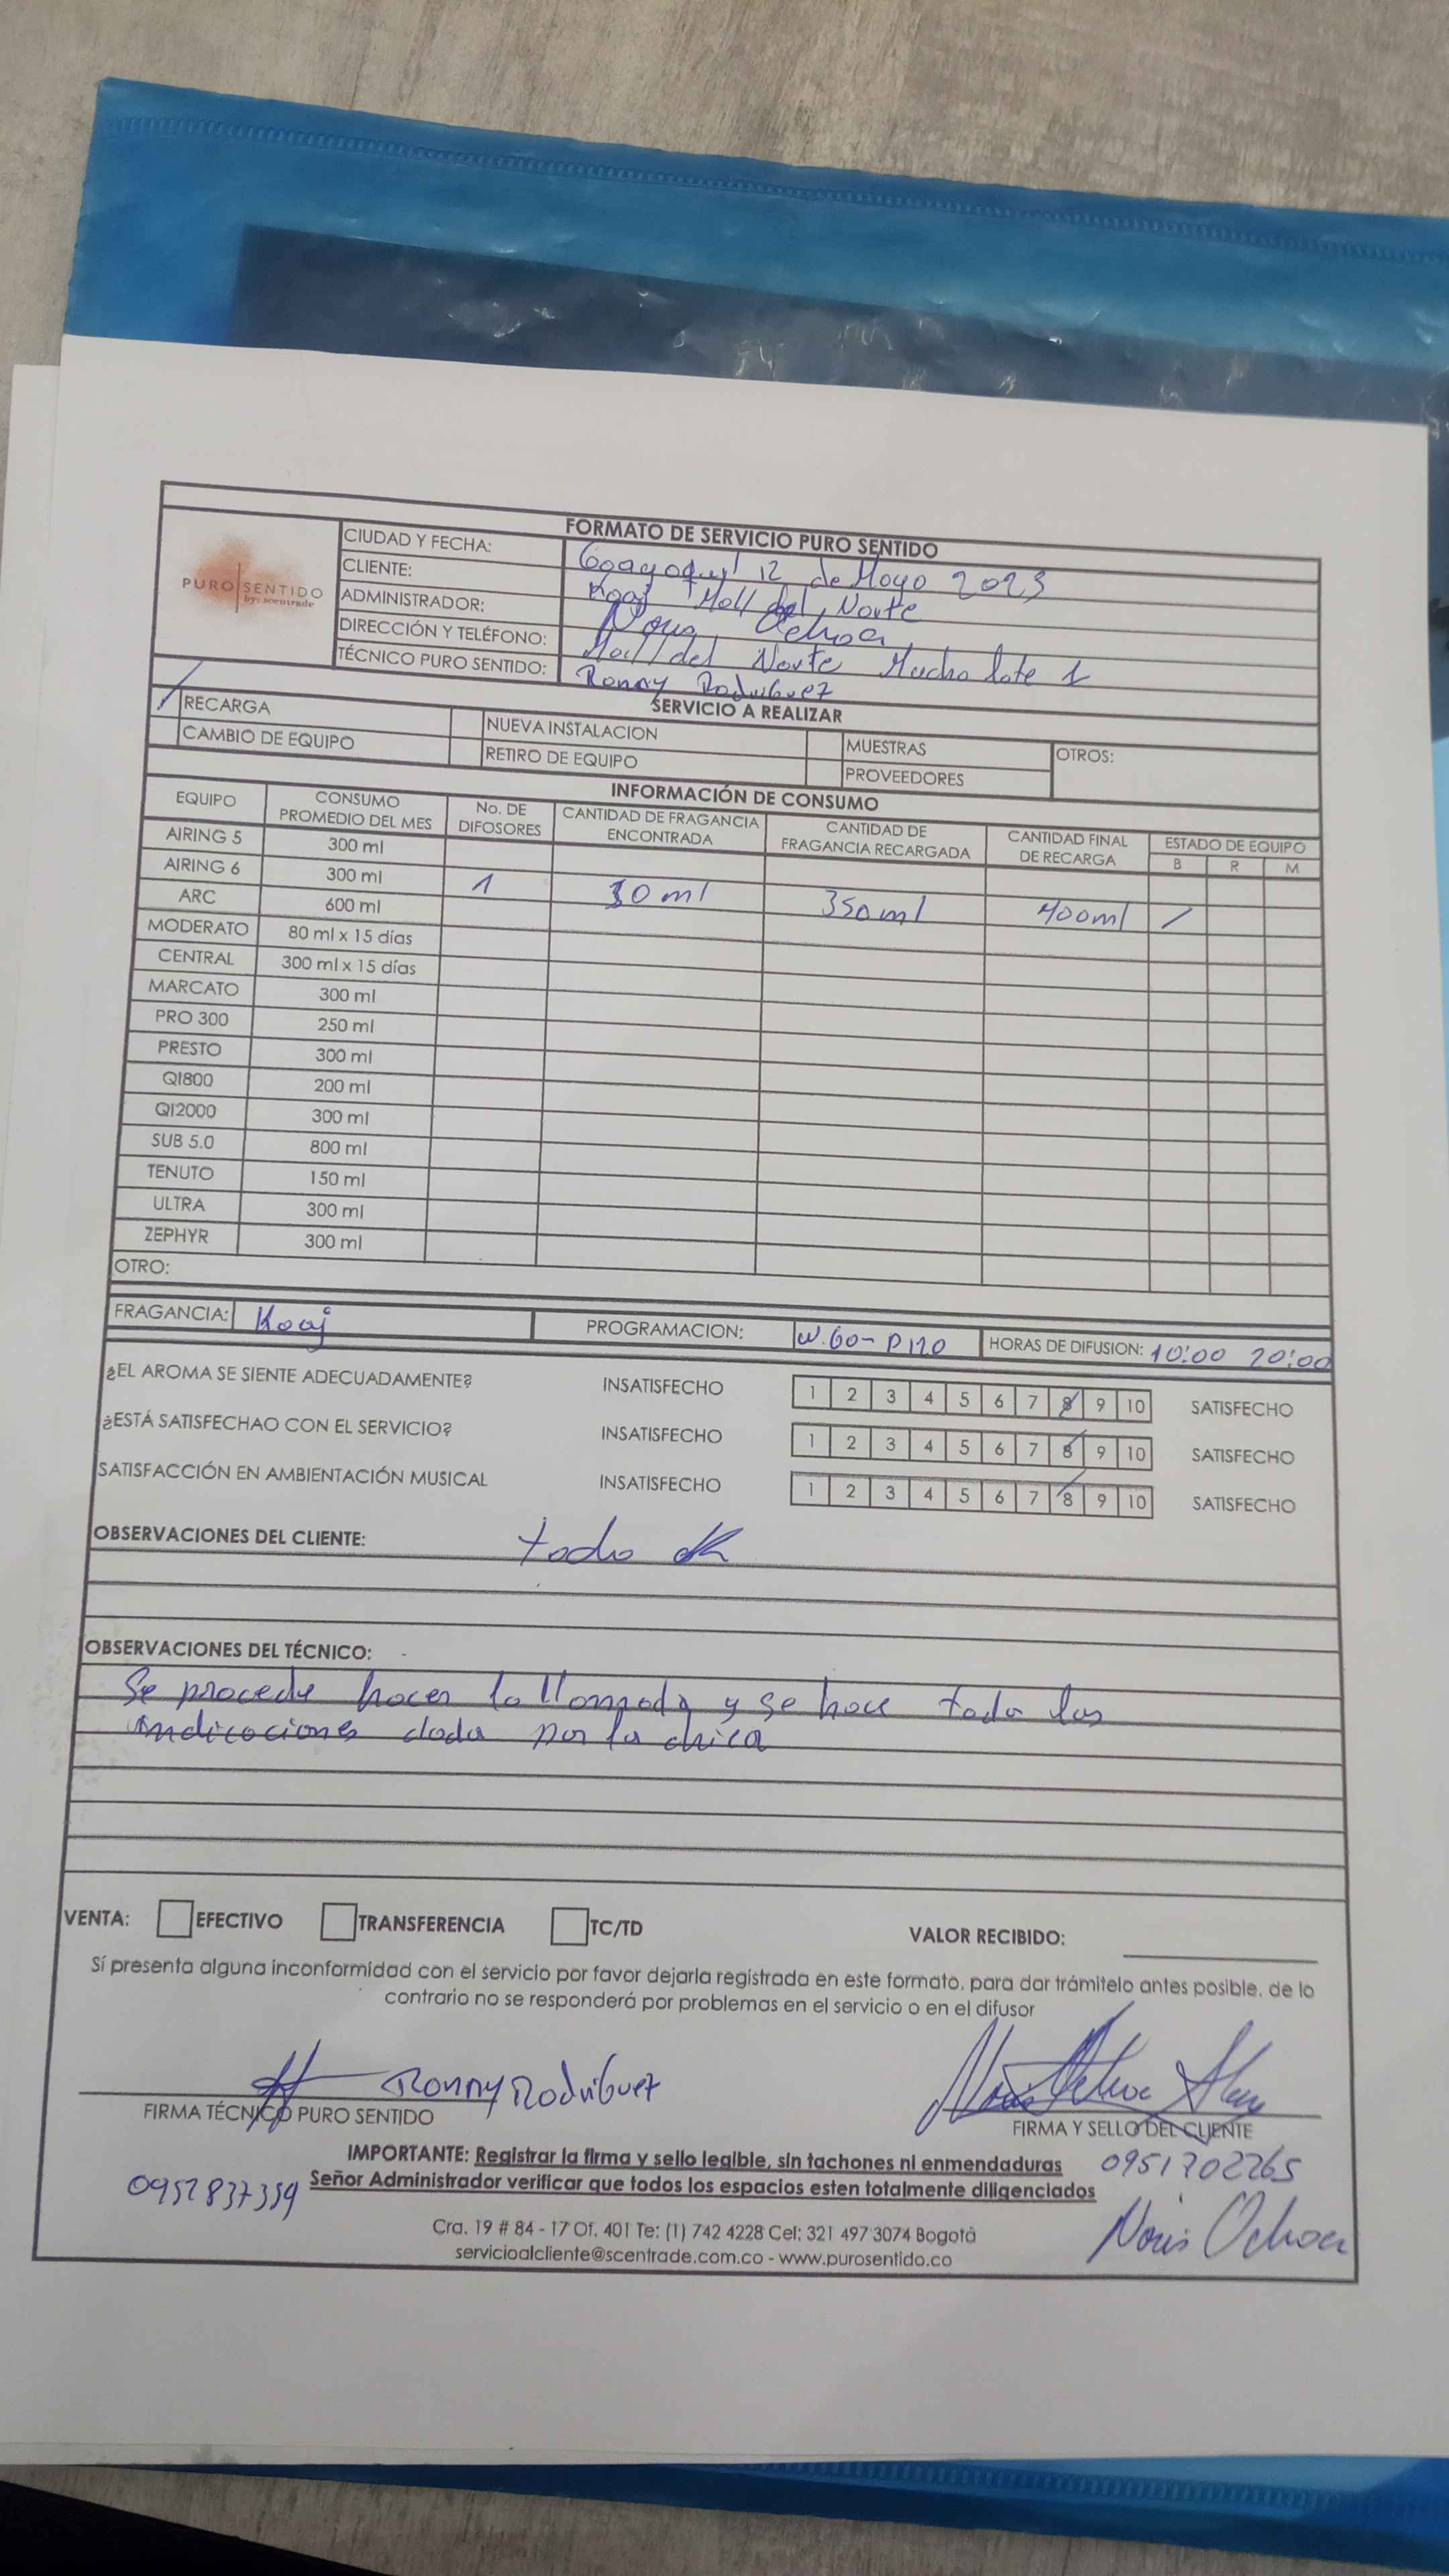 FORMATO DE SERVICIO PURO SENTIDO
PURO SENTIDO
by: scentrade
CIUDAD Y FECHA: 12 de Mayo 2023
CLIENTE: Mall del Norte
ADMINISTRADOR: Ochoa
DIRECCIÓN Y TELÉFONO: Mall del Norte Mucho lote 1
TÉCNICO PURO SENTIDO: Ronny Rodriguez
SERVICIO A REALIZAR
/ RECARGA NUEVA INSTALACION MUESTRAS OTROS:
CAMBIO DE EQUIPO RETIRO DE EQUIPO PROVEEDORES
INFORMACIÓN DE CONSUMO
EQUIPO CONSUMO PROMEDIO DEL MES No. DE DIFOSORES CANTIDAD DE FRAGANCIA ENCONTRADA CANTIDAD DE FRAGANCIA RECARGADA CANTIDAD FINAL DE RECARGA ESTADO DE EQUIPO
B R M
AIRING 5 300 ml
AIRING 6 300 ml 1 ml 350 ml 400 ml /
ARC 600 ml
MODERATO 80 ml x 15 días
CENTRAL 300 ml x 15 días
MARCATO 300 ml
PRO 300 250 ml
PRESTO 300 ml
QI800 200 ml
QI2000 300 ml
SUB 5.0 800 ml
TENUTO 150 ml
ULTRA 300 ml
ZEPHYR 300 ml
OTRO:
FRAGANCIA: Kooj PROGRAMACION: W.60- P120 HORAS DE DIFUSION: 10:00 20:00
¿EL AROMA SE SIENTE ADECUADAMENTE? INSATISFECHO 1 2 3 4 5 6 7 8 9 10 SATISFECHO
¿ESTÁ SATISFECHAO CON EL SERVICIO? INSATISFECHO 1 2 3 4 5 6 7 8 9 10 SATISFECHO
SATISFACCIÓN EN AMBIENTACIÓN MUSICAL INSATISFECHO 1 2 3 4 5 6 7 8 9 10 SATISFECHO
OBSERVACIONES DEL CLIENTE: todo ok
OBSERVACIONES DEL TÉCNICO:
Se procede hacer la llamada y se hace toda las
indicaciones dada por la chica
VENTA: EFECTIVO TRANSFERENCIA TC/TD VALOR RECIBIDO:
Sí presenta alguna inconformidad con el servicio por favor dejarla registrada en este formato, para dar trámitelo antes posible, de lo
contrario no se responderá por problemas en el servicio o en el difusor
Ronny Rodriguez
FIRMA TÉCNICO PURO SENTIDO FIRMA Y SELLO DEL CLIENTE
IMPORTANTE: Registrar la firma y sello legible, sin tachones ni enmendaduras 0951702265
0952837359 Señor Administrador verificar que todos los espacios esten totalmente diligenciados
Noris Ochoa
Cra. 19 # 84 - 17 Of. 401 Te: (1) 742 4228 Cel: 321 497 3074 Bogotá
servicioalcliente@scentrade.com.co - www.purosentido.co